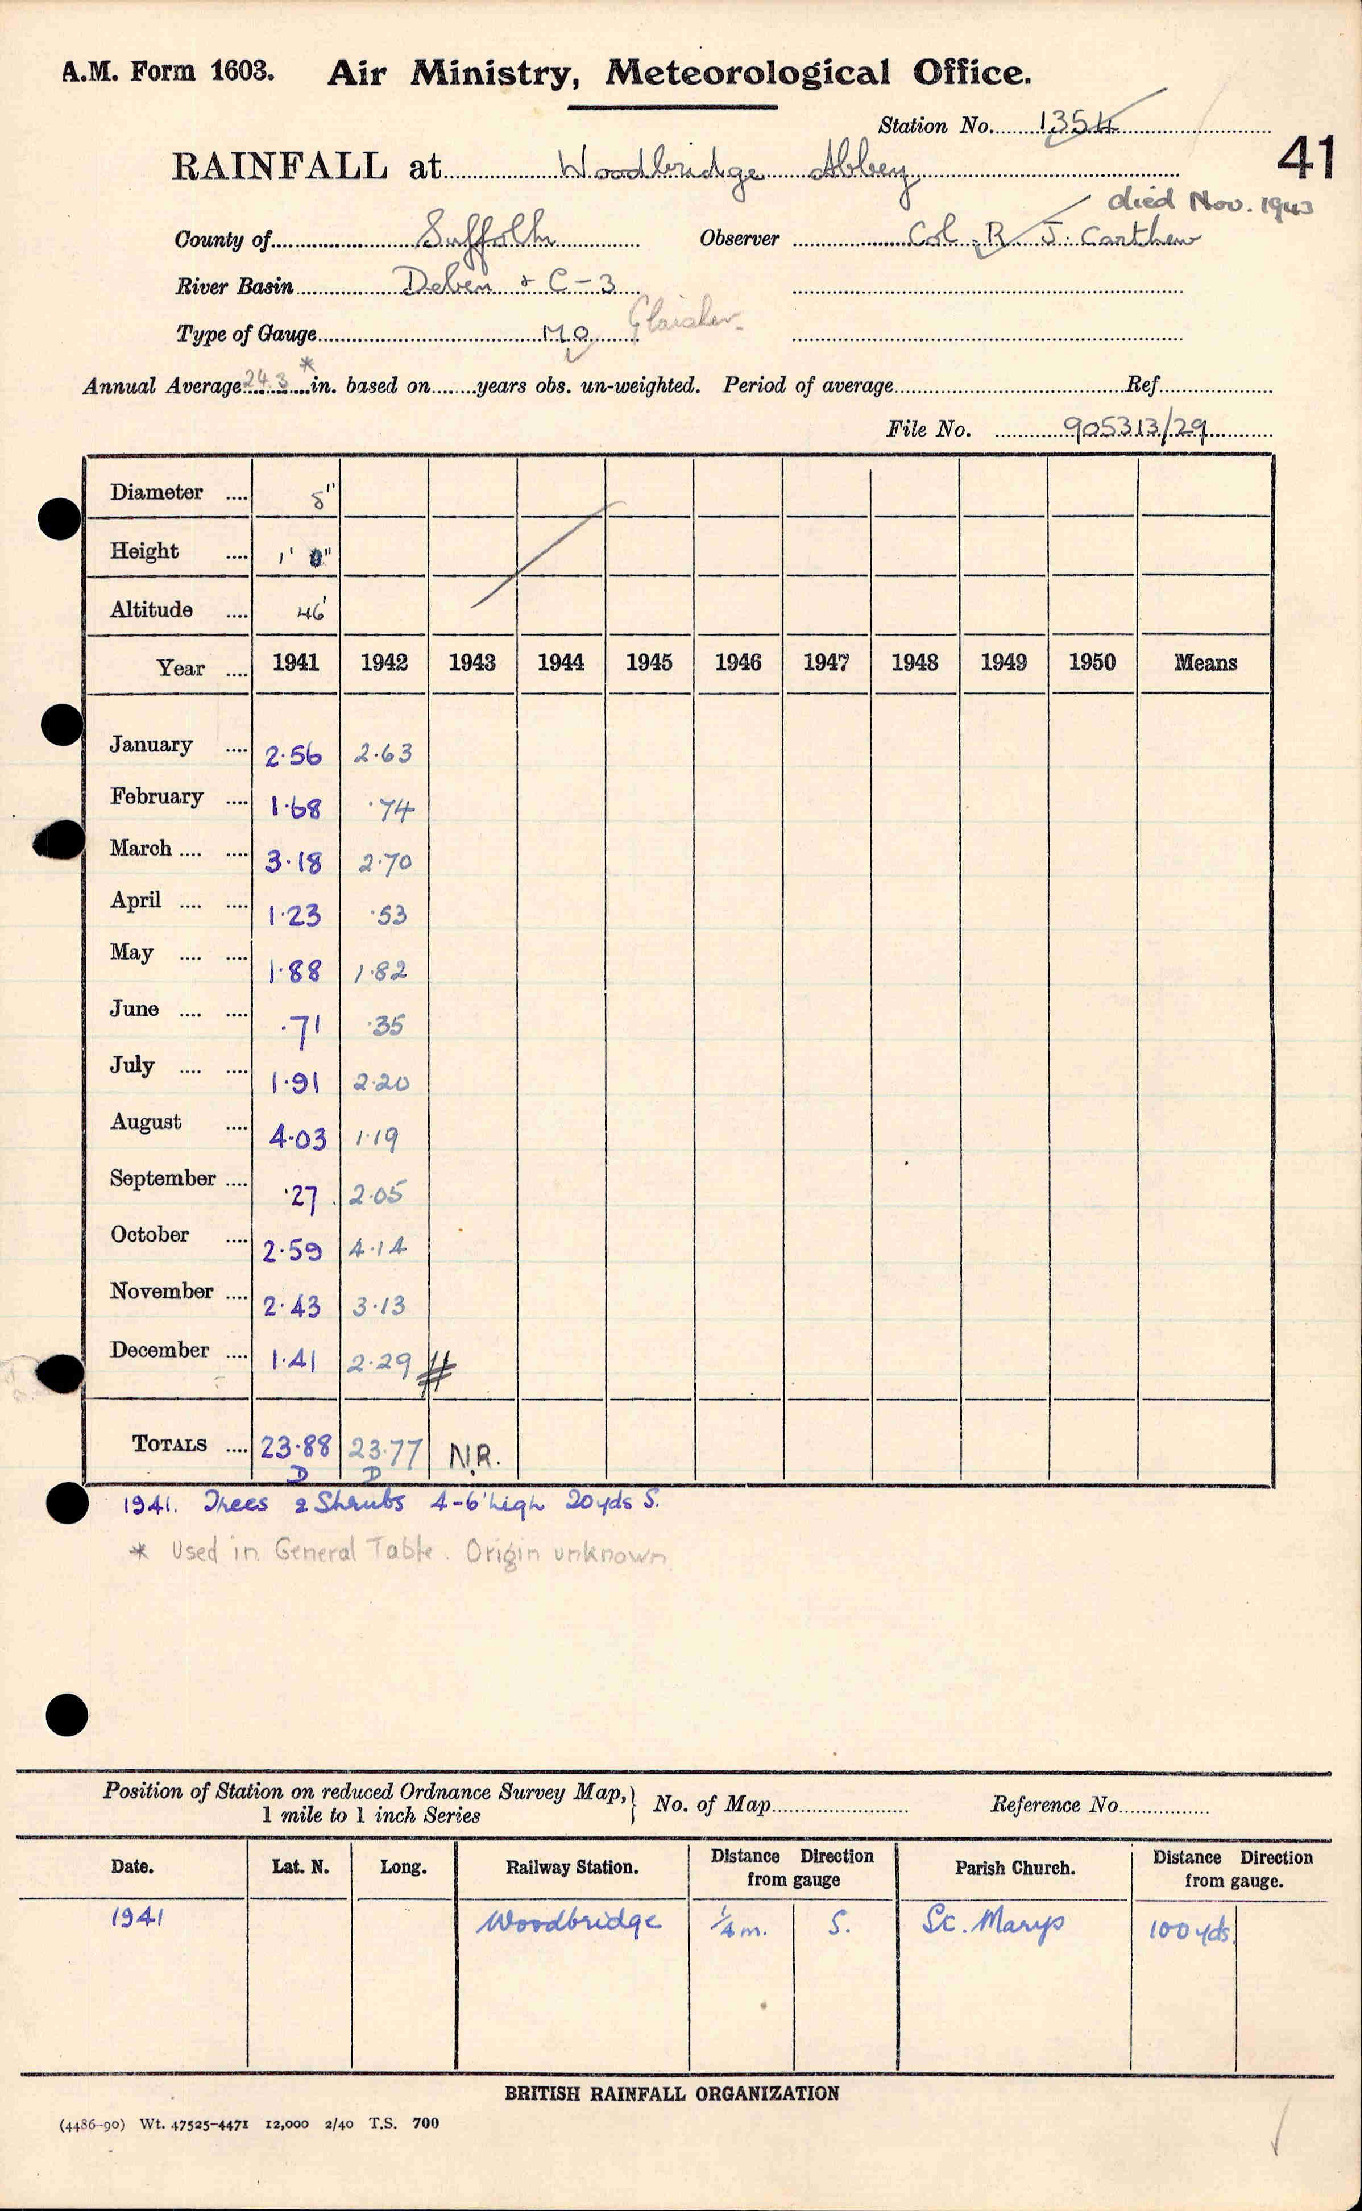 A.M. Form 1603. Air Ministry, Meteorological Office.
Station No. 1354
41
RAINFALL at Woodbridge Abbey
died Nov. 1943
County of Suffolk Observer Col. R. J. Carthew
River Basin Deben & C-3
Type of Gauge MO Glaisher.
Annual Average 24.3 * in. based on years obs. un-weighted. Period of average Ref.
File No. 905313/29
Diameter 8"
Height 1' 0"
Altitude 46'
Year 1941 1942 1943 1944 1945 1946 1947 1948 1949 1950 Means
January 2.56 2.63
February 1.68 .74
March 3.18 2.70
April 1.23 .53
May 1.88 1.82
June .71 .35
July 1.91 2.20
August 4.03 1.19
September .27 2.05
October 2.59 4.14
November 2.43 3.13
December 1.41 2.29
TOTALS 23.88 23.77 N.R.
D D
1941. Trees & Shrubs 4-6' high 20yds S.
* Used in General Table. Origin unknown
Position of Station on reduced Ordnance Survey Map, 1 mile to 1 inch Series } No. of Map Reference No.
Date. Lat. N. Long. Railway Station. Distance Direction from gauge Parish Church. Distance Direction from gauge.
1941 Woodbridge 1/4 m. S. St. Marys 100 yds.
BRITISH RAINFALL ORGANIZATION
(4486-90) Wt. 47525-4471 12,000 2/40 T.S. 700